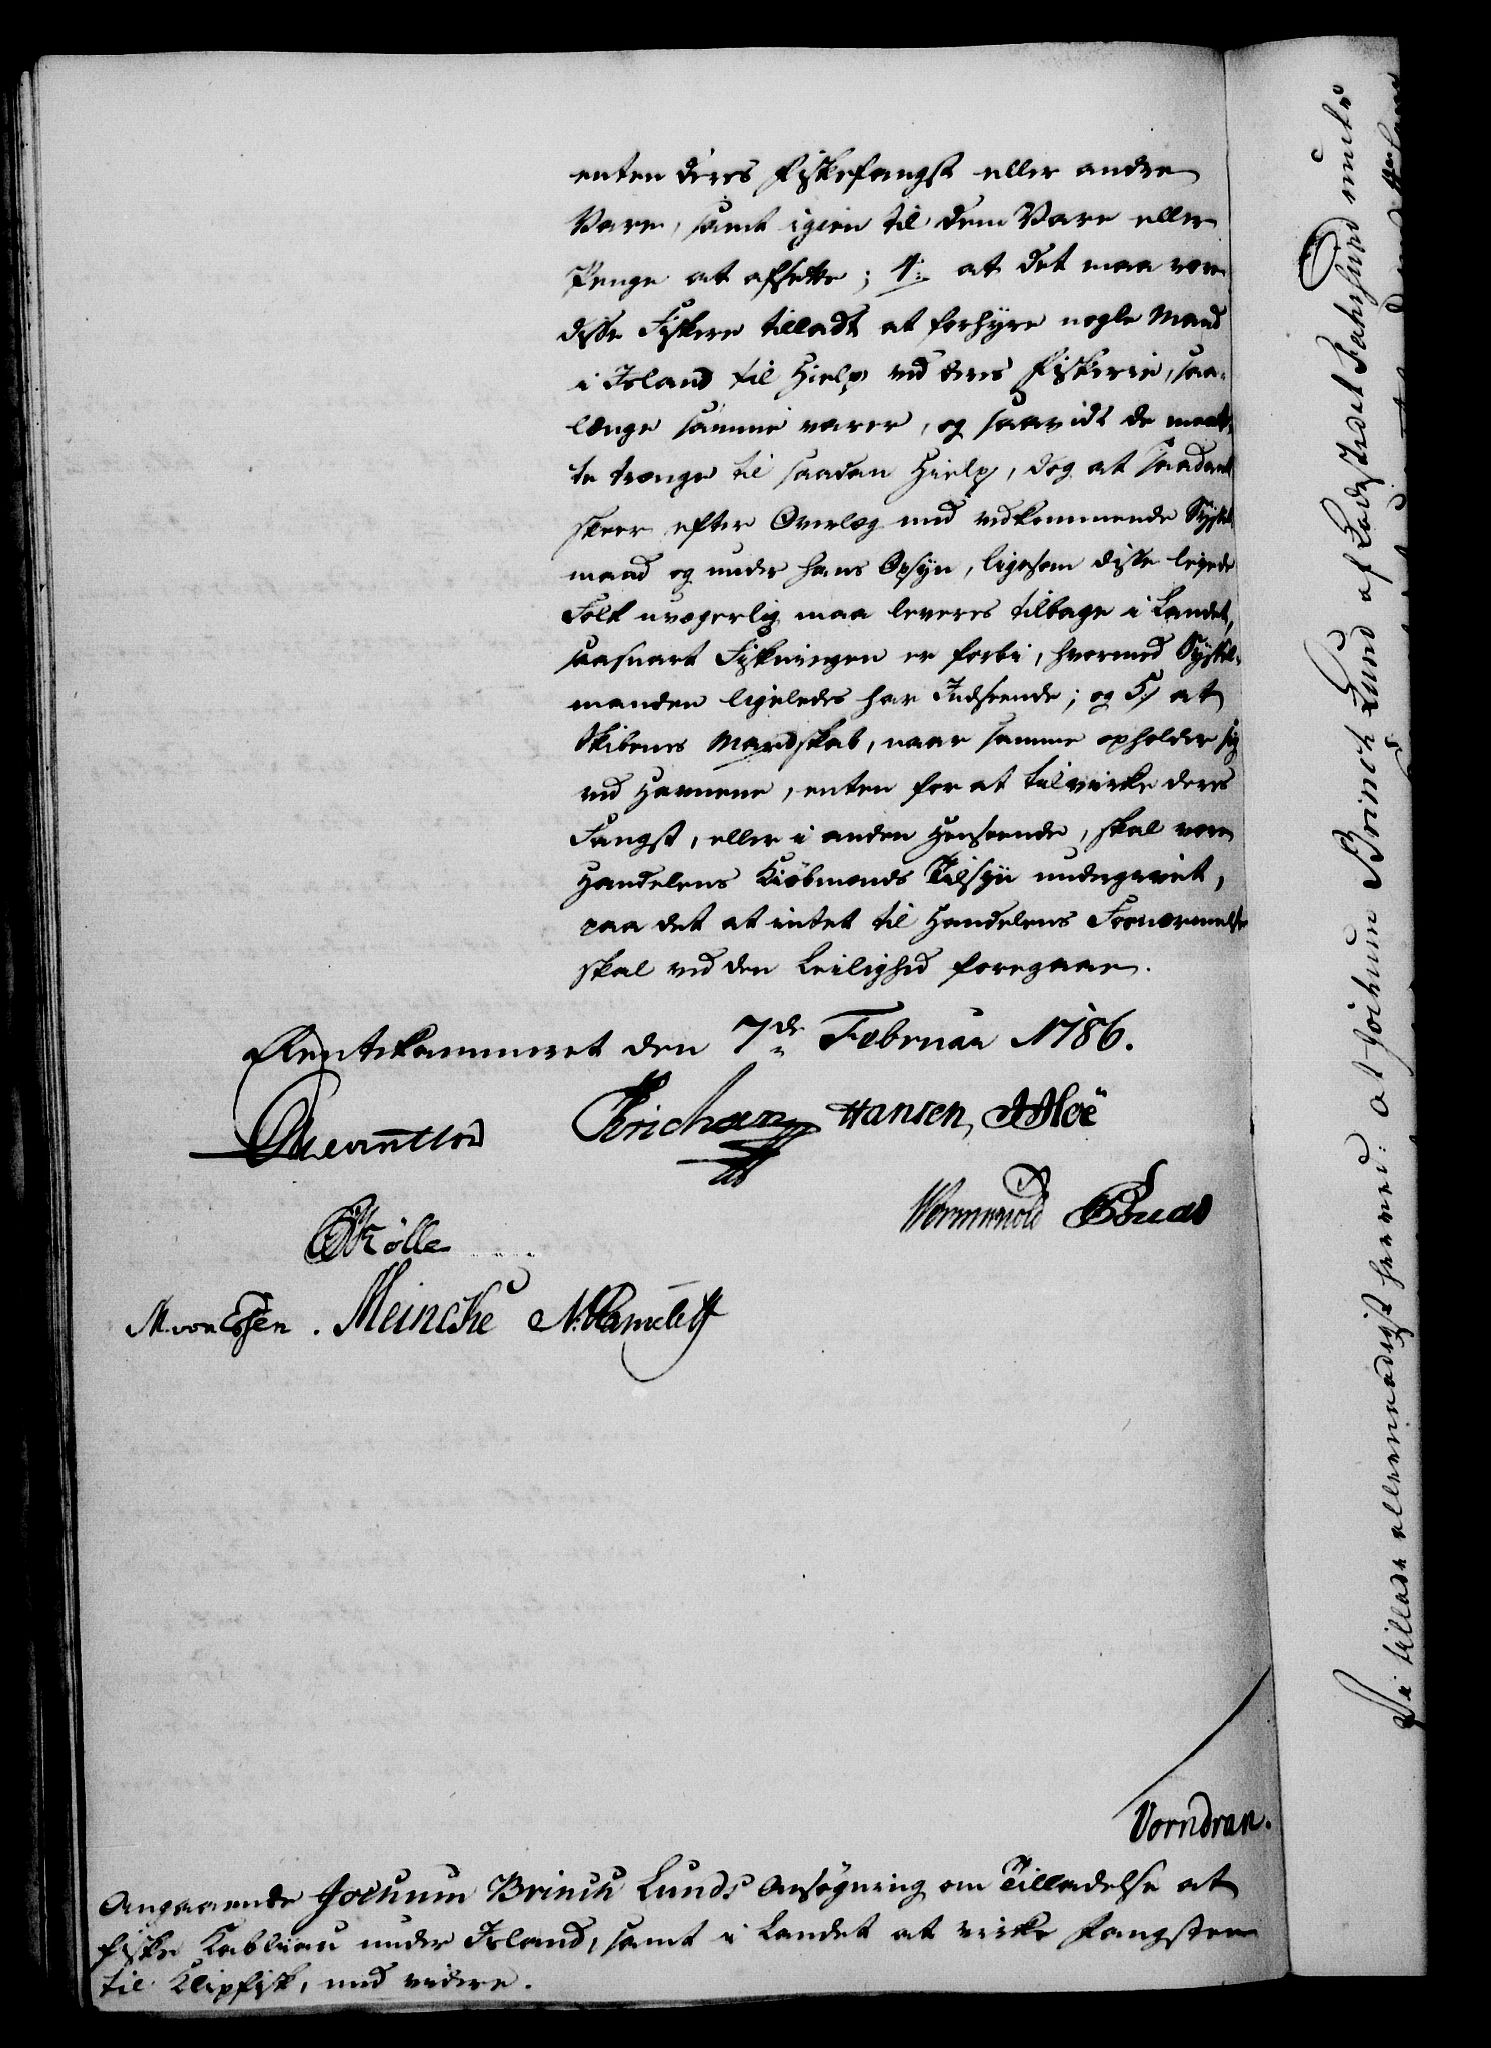 enten deres Fiskefangst eller andre
Vare, samt igien til dem Vare eller
Penge at afsette; 4. at det maa være
disse Fiskere tilladt at forhyre nogle Mand
i Island til Hielp ved deres Fiskerie, saa-
længe samme varer, og saavidt de maat-
te trænge til saadan Hielp, dog at saadant
skeer efter Overlæg med vedkommende Syssel-
mand og under hans Opsyn, ligesom disse leyede
Folk uvægerlig maa leveres tilbage i Landet,
saasnart Fiskningen er forbi, hvormed Syssel-
manden ligeledes har Indseende; og 5. at
Skibenes Mandskab, naar samme opholder sig
ved Havnene, enten for at tilvirke deres
Fangst, eller i anden Henseende, skal være
Handelens Kiøbmands Tilsyn undergivet,
paa det at intet til Handelens Fornærmelse
skal ved den Leilighed foregaae.
Rentekammeret den 7de Februar 1786.
Erichsen Hansen,
Wormskiold
Kølle
M. von Essen. Meincke
Vorndran.
Angaaende Jochum Brinch Lunds Ansøgning om Tilladelse at
fiske Kabliau under Island, samt i Landet at virke Fangsten
til Klipfisk, med videre.
Vi tillade allernaadigst herved: at Jochum Brinch Lund af Ladestedet Farhsund